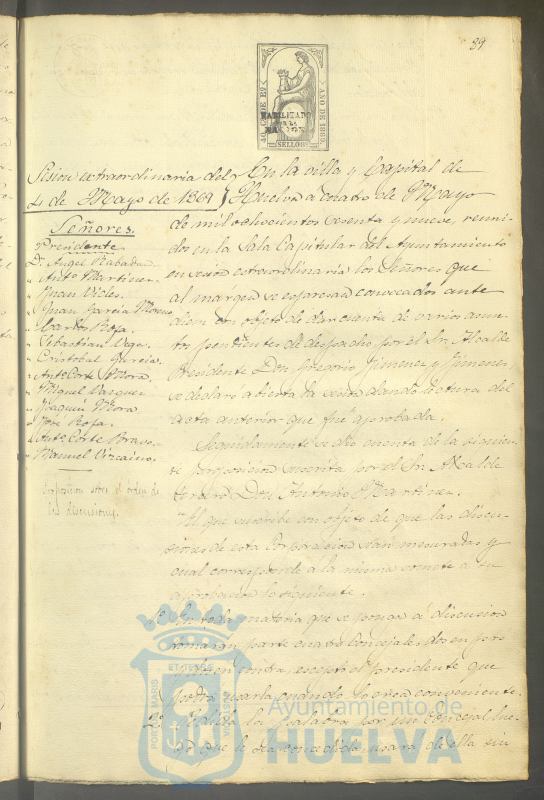 89
40 Cs. DE Eº
AÑO DE 1869
HABILITADO
POR LA
NACION
SELLO 8º
Sesion extraordinaria del
4 de Mayo de 1869
En la villa y Capital de
Huelva a cuatro de Mayo
Señores.
Presidente
D. Angel Rabadan
" Antº Martinez.
" Juan Vides.
" Juan Garcia Moreno
" Carlos Roja.
" Sebastian Vega.
" Cristobal Garcia.
" Antº Corte Mora.
" Miguel Vazquez
" Joaquin Mora.
" José Roja.
" Antº Corte Bravo.
" Manuel Vizcaino.
Proposicion sobre el orden de
las discusiones.
de mil ochocientos sesenta y nueve, reuni-
dos en la Sala Capitular del Ayuntamiento
en sesion extraordinaria los Señores que
al márgen se expresan convocados ante
diem con objeto de dar cuenta de varios asun-
tos pendientes de despacho por el Sr. Alcalde
Presidente Don Gregorio Jimenez y Jimenez,
se declaró abierta la sesion dando lectura del
acta anterior que fué aprobada.
Seguidamente se dió cuenta de la siguien-
te proposicion suscrita por el Sr. Alcalde
tercero Don Antonio Martinez.
"El que suscribe con objeto de que las discu-
siones de esta Corporacion sean mesuradas y
cual corresponde a la misma somete a su
aprobacion lo siguiente.
1º En toda materia que se ponga á discusion
tomaran parte cuatro Concejales, dos en pro
y dos en contra, escepto el presidente que
podrá usarla cuando lo crea conveniente.
2º Pedida la palabra por un Concejal lue-
go que le sea concedida usará de ella sin
PORTUS MARIS
ET TERRE
CUSTODIA
Ayuntamiento de
HUELVA